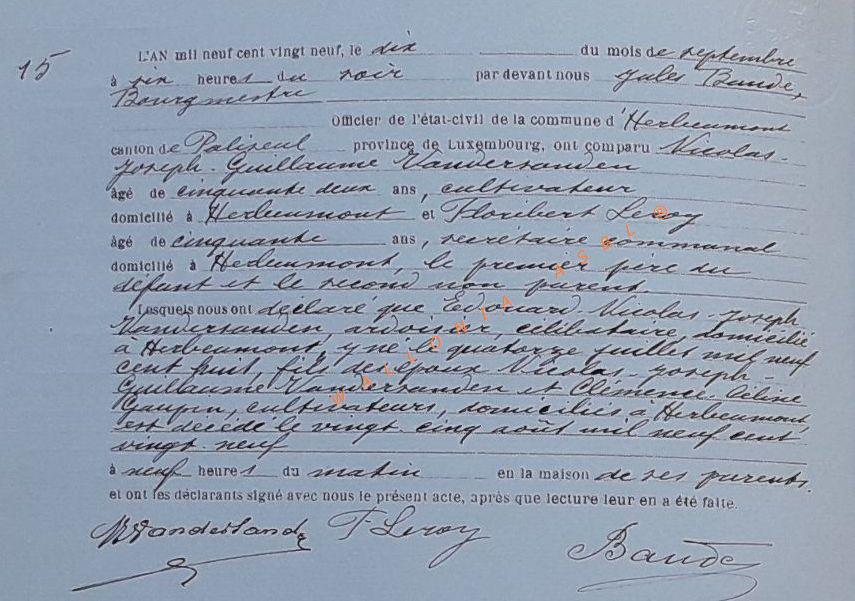 15
L'AN mil neuf cent vingt neuf, le dix du mois de septembre
à six heures du soir par devant nous Jules Baude,
Bourgmestre
Officier de l'état-civil de la commune d'Herbeumont
canton de Paliseul province de Luxembourg, ont comparu Nicolas-
Joseph-Guillaume Vandersanden
âgé de cinquante deux ans, cultivateur
domicilié à Herbeumont et Floribert Leroy
âgé de cinquante ans, secrétaire communal
domicilié à Herbeumont, le premier père du
défunt et le second non parent
Lesquels nous ont déclaré que Edouard-Nicolas-Joseph
Vandersanden, ardoisier, célibataire, domicilié
à Herbeumont, y né le quatorze juillet mil neuf
cent huit, fils des époux Nicolas-Joseph-
Guillaume Vandersanden et Clémence-Céline
Goupin, cultivateurs, domiciliés à Herbeumont
est décédé le vingt-cinq août mil neuf cent
vingt-neuf
à neuf heures du matin en la maison de ses parents.
et ont les déclarants signé avec nous le présent acte, après que lecture leur en a été faite.
NVandersanden F Leroy Baude
WALLONIA ASBL ©